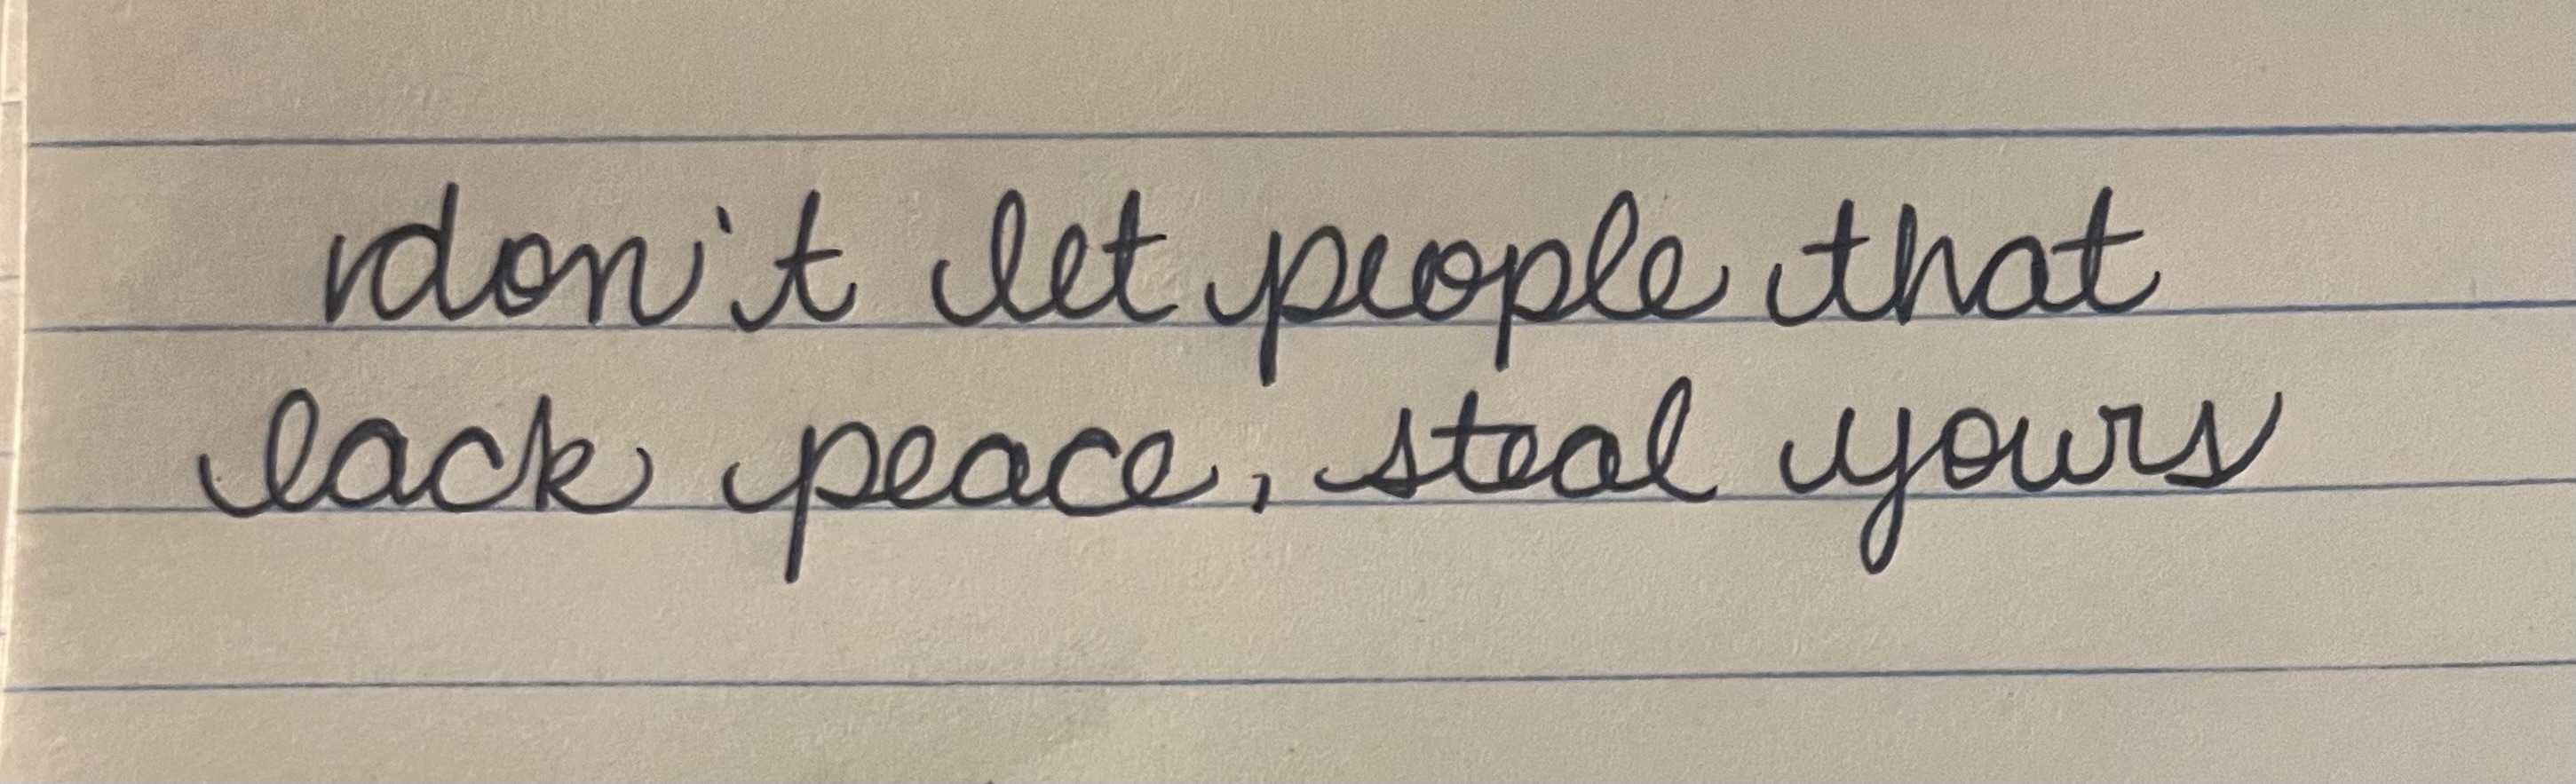 don't let people that
lack peace, steal yours